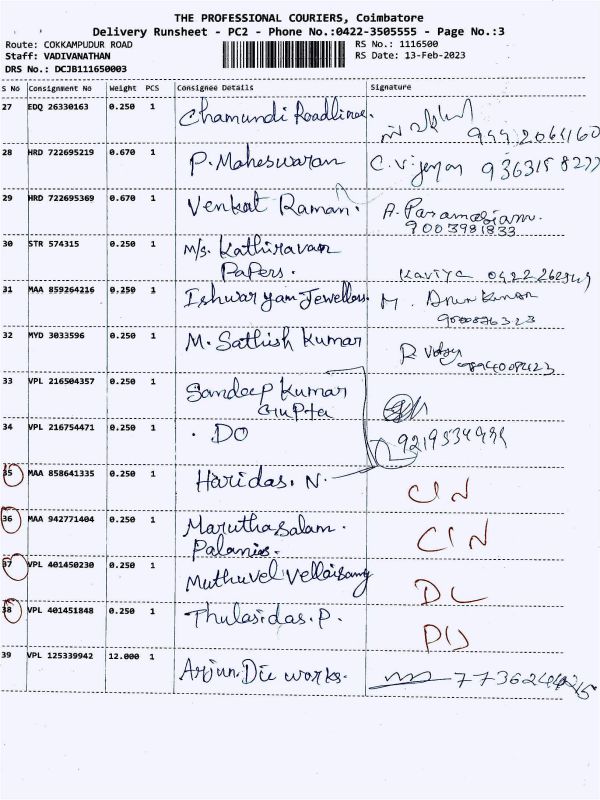 THE PROFESSIONAL COURIERS, Coimbatore
Delivery Runsheet - PC2 - Phone No.:0422-3505555 - Page No.:3
Route: COKKAMPUDUR ROAD
Staff: VADIVANATHAN
DRS No.: DCJB111650003
RS No.: 1116500
RS Date: 13-Feb-2023
S No Consignment No Weight PCS Consignee Details Signature
27 EDQ 26330163 0.250 1 Chamundi Roadlines.
28 HRD 722695219 0.670 1 P. Maheswaran C. Vijayan
29 HRD 722695369 0.670 1 Venkat Raman. A. Paramasivam.
9003981833
30 STR 574315 0.250 1 M/s. Kathiravan
Papers. Kaviya
31 MAA 859264216 0.250 1 Ishwaryam Jewellers. M. Arun Kumar
32 MYD 3033596 0.250 1 M. Sathish Kumar
33 VPL 216504357 0.250 1 Sandeep Kumar
Gupta
34 VPL 216754471 0.250 1 . DO
35 MAA 858641335 0.250 1 Haridas. N.
36 MAA 942771404 0.250 1 Maruthasalam.
37 VPL 401450230 0.250 1 Muthuvel Vellaisamy DL
38 VPL 401451848 0.250 1 Thulasidas. P.
39 VPL 125339942 12.000 1 Arjun Die works.